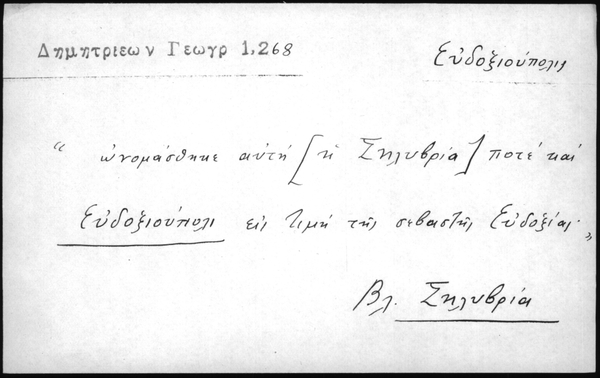 Δημητριεων Γεωγρ 1,268
Εὐδοξιούπολις
“ ὠνομάσθηκε αὐτή [ ἡ Σηλυβρία ] ποτέ καί
Εὐδοξιούπολι εἰς τιμή τῆς σεβαστῆς Εὐδοξίας. ”
Βλ. Σηλυβρία